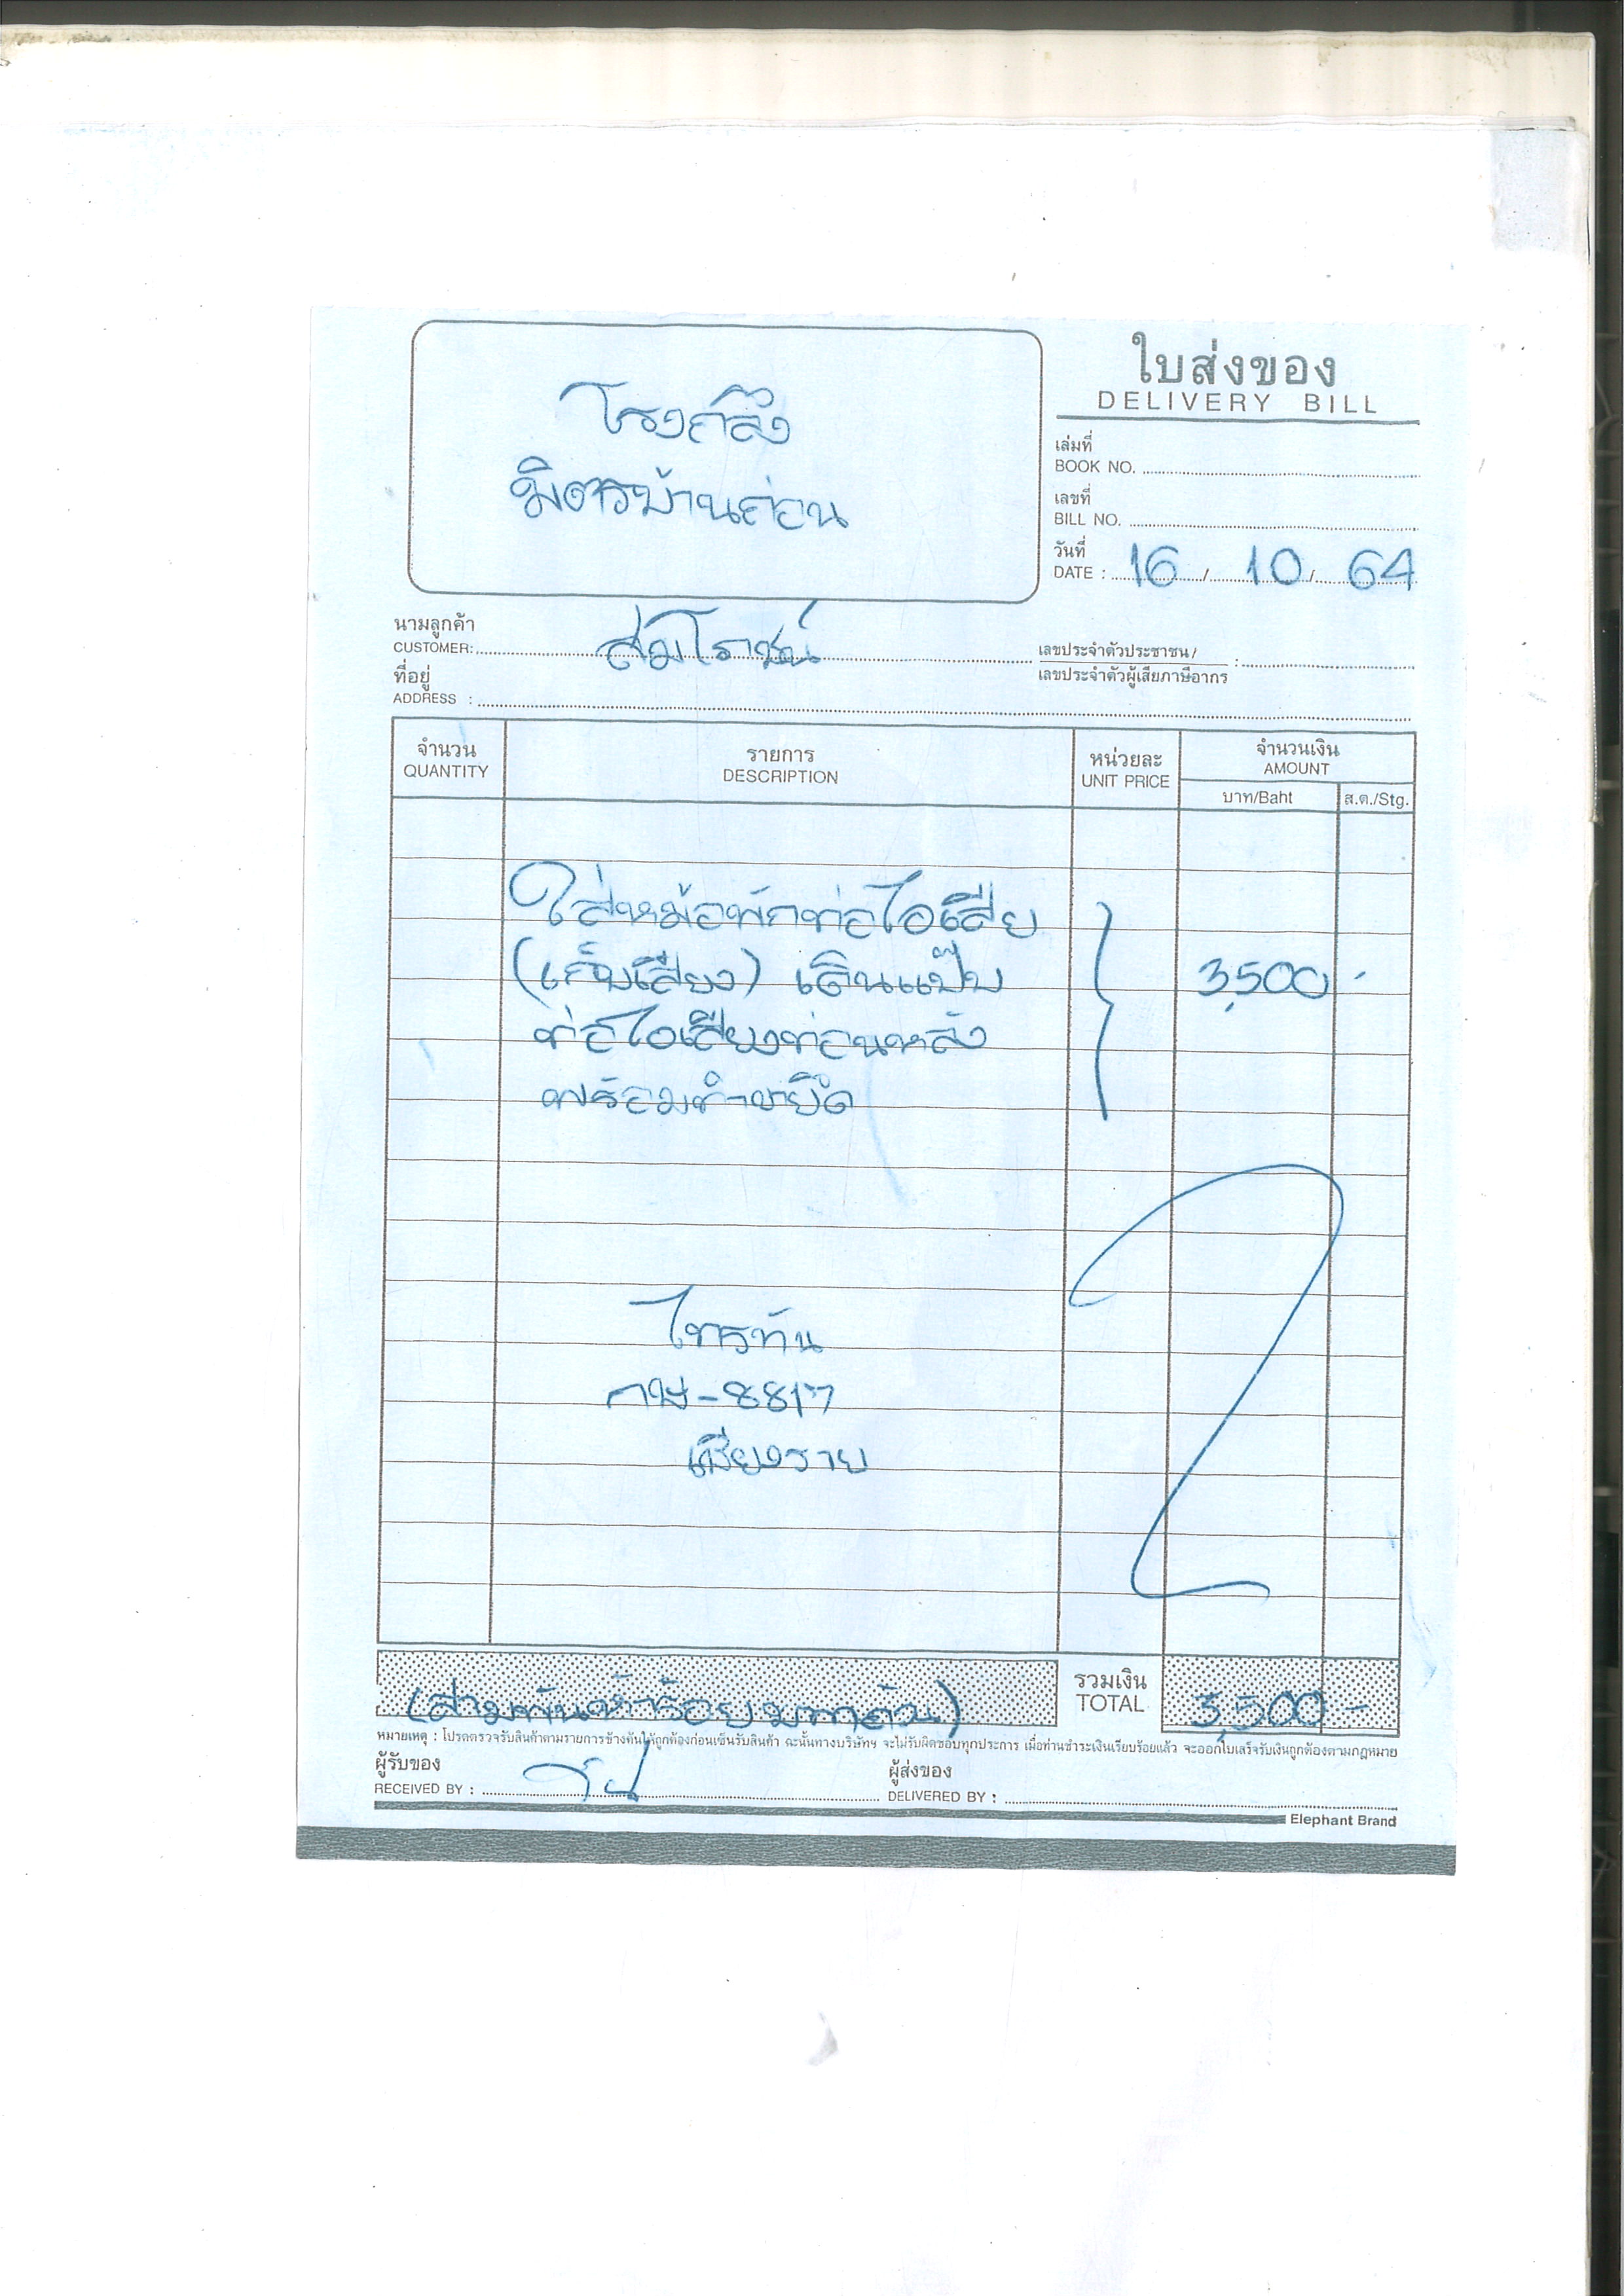 ใบส่งของ
DELIVERY BILL
โรงกลึง
มิตรบ้านก่อน
เล่มที่
BOOK NO.
เลขที่
BILL NO.
วันที่
DATE : 16 / 10 / 64
นามลูกค้า
CUSTOMER: สมโรชน์
เลขประจำตัวประชาชน /
เลขประจำตัวผู้เสียภาษีอากร :
ที่อยู่
ADDRESS :
จำนวน
QUANTITY
รายการ
DESCRIPTION
หน่วยละ
UNIT PRICE
จำนวนเงิน
AMOUNT
บาท/Baht
ส.ต./Stg.
ใส่หม้อพักท่อไอเสีย
(เก็บเสียง) เดินแป๊บ 3,500 -
ท่อไอเสียท่อนหลัง
พร้อมขายึด
ไทรทัน
8817
เชียงราย
(สามพันห้าร้อยบาทถ้วน)
รวมเงิน
TOTAL 3,500 -
หมายเหตุ : โปรดตรวจรับสินค้าตามรายการข้างต้นให้ถูกต้องก่อนเซ็นรับสินค้า ฉะนั้นทางบริษัทฯ จะไม่รับผิดชอบทุกประการ เมื่อท่านชำระเงินเรียบร้อยแล้ว จะออกใบเสร็จรับเงินถูกต้องตามกฎหมาย
ผู้รับของ
RECEIVED BY :
ผู้ส่งของ
DELIVERED BY :
Elephant Brand